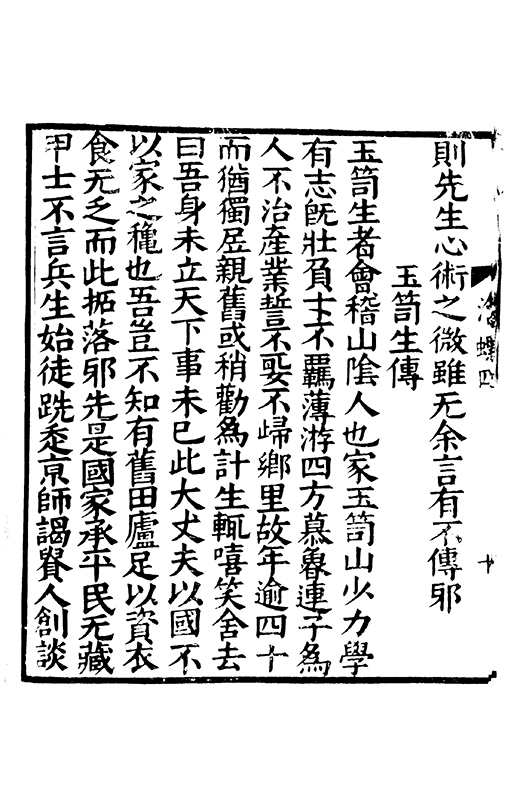 則先生心術之微雖无余言有不傳邪
玉笥生傳
玉笥生者會稽山陰人也家玉笥山少力學
有志旣壯負士不羈薄游四方慕魯連子爲
人不治產業誓不娶不歸鄉里故年逾四十
而猶獨居親舊或稍勸爲計生輒嘻笑舍去
曰吾身未立天下事未已此大丈夫以國不
以家之穐也吾豈不知有舊田廬足以資衣
食无乏而此柘落邪先是國家承平民无藏
甲士不言兵生始徒跣走京師謁貴人創談
四
十